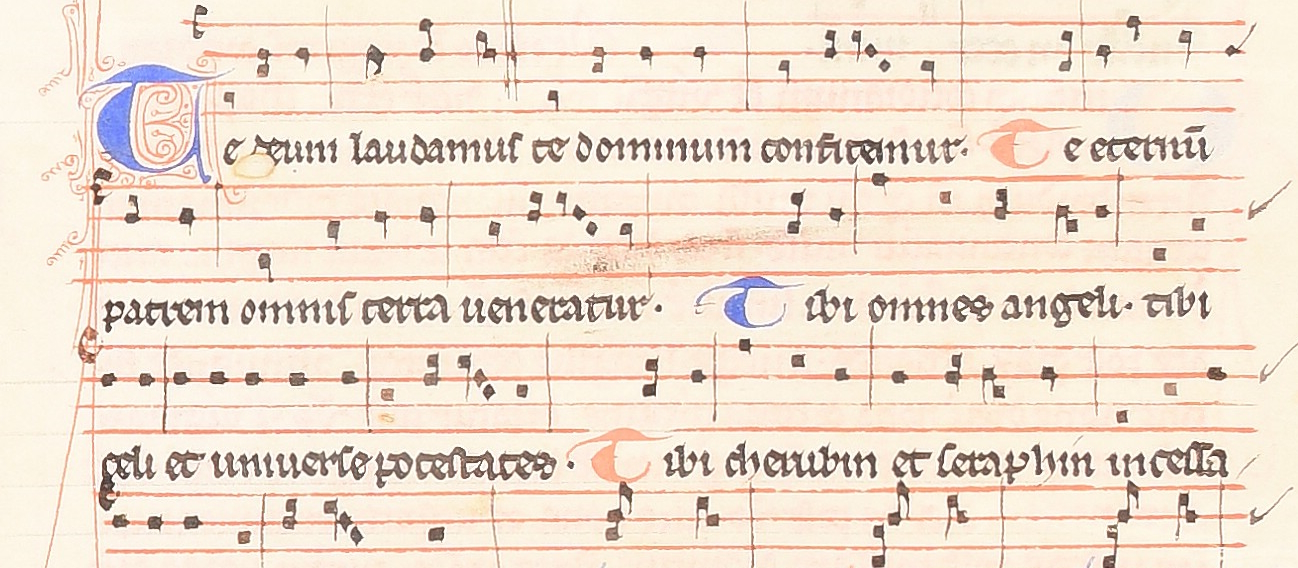 Te deum laudamus te dominum confitemur. Te eternū
patrem omnis terra ueneratur. Tibi omnes angeli. tibi
celi et uniuerse potestates. Tibi cherubin et seraphin incessa